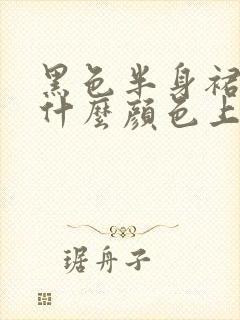 黑色半身裙
什麼顏色上
琚舟子